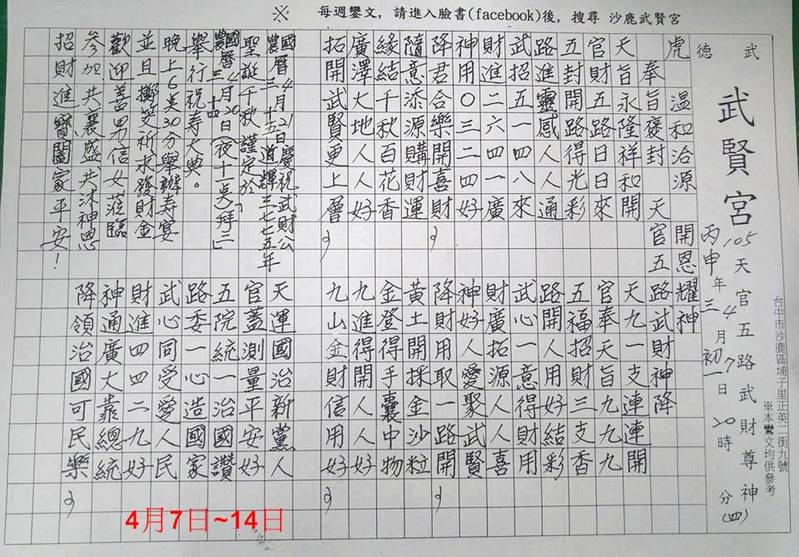 ※ 每週鑾文，請進入臉書(facebook)後，搜尋 沙鹿武賢宮
武德
武賢宮
105 天官五路武財尊神(四)
丙申年三4月初17日20時 分
台中市沙鹿區埔子里正英二街九號
※本鸞文均供參考
虎 溫和洽源 開恩耀神
奉旨褒封 天官五路武財神降
天旨永隆祥和開
官財五路日日來
五封開路得光彩
路進靈感人人通
武招五一八八來
財進二六一四廣
神用〇三二四好
降君合樂開喜財
隨意添源購財運
緣結千秋百花香
廣澤大地人人好
拓開武賢更上層
國曆4月21日慶祝武財公
農曆三月十五 道輝三七七五年
聖誕千秋 謹定於
國曆4月20日
農曆三 十四
舉行祝壽大典。
晚上6點30分舉辦壽宴
並且擲筊祈求發財金
歡迎善男信女蒞臨
參加共襄盛共沐神恩
招財進寶闔家平安！
天九一支連連開
官奉天旨九九九
五福招財三支香
路開人用好結彩
武心一意得財用
財廣拓源人人喜
神好人愛聚武賢
降財用取一路開
黃土開採金沙粒
金登得手囊中物
九進得開人人好
九山金財信用好
天運國治新黨人
官蓋測量平安好
五院統一治國讚
路委一心造國家
武心同受愛人民
財進四四二九好
神通廣大靠總統
降領治國可民樂
4月7日~14日